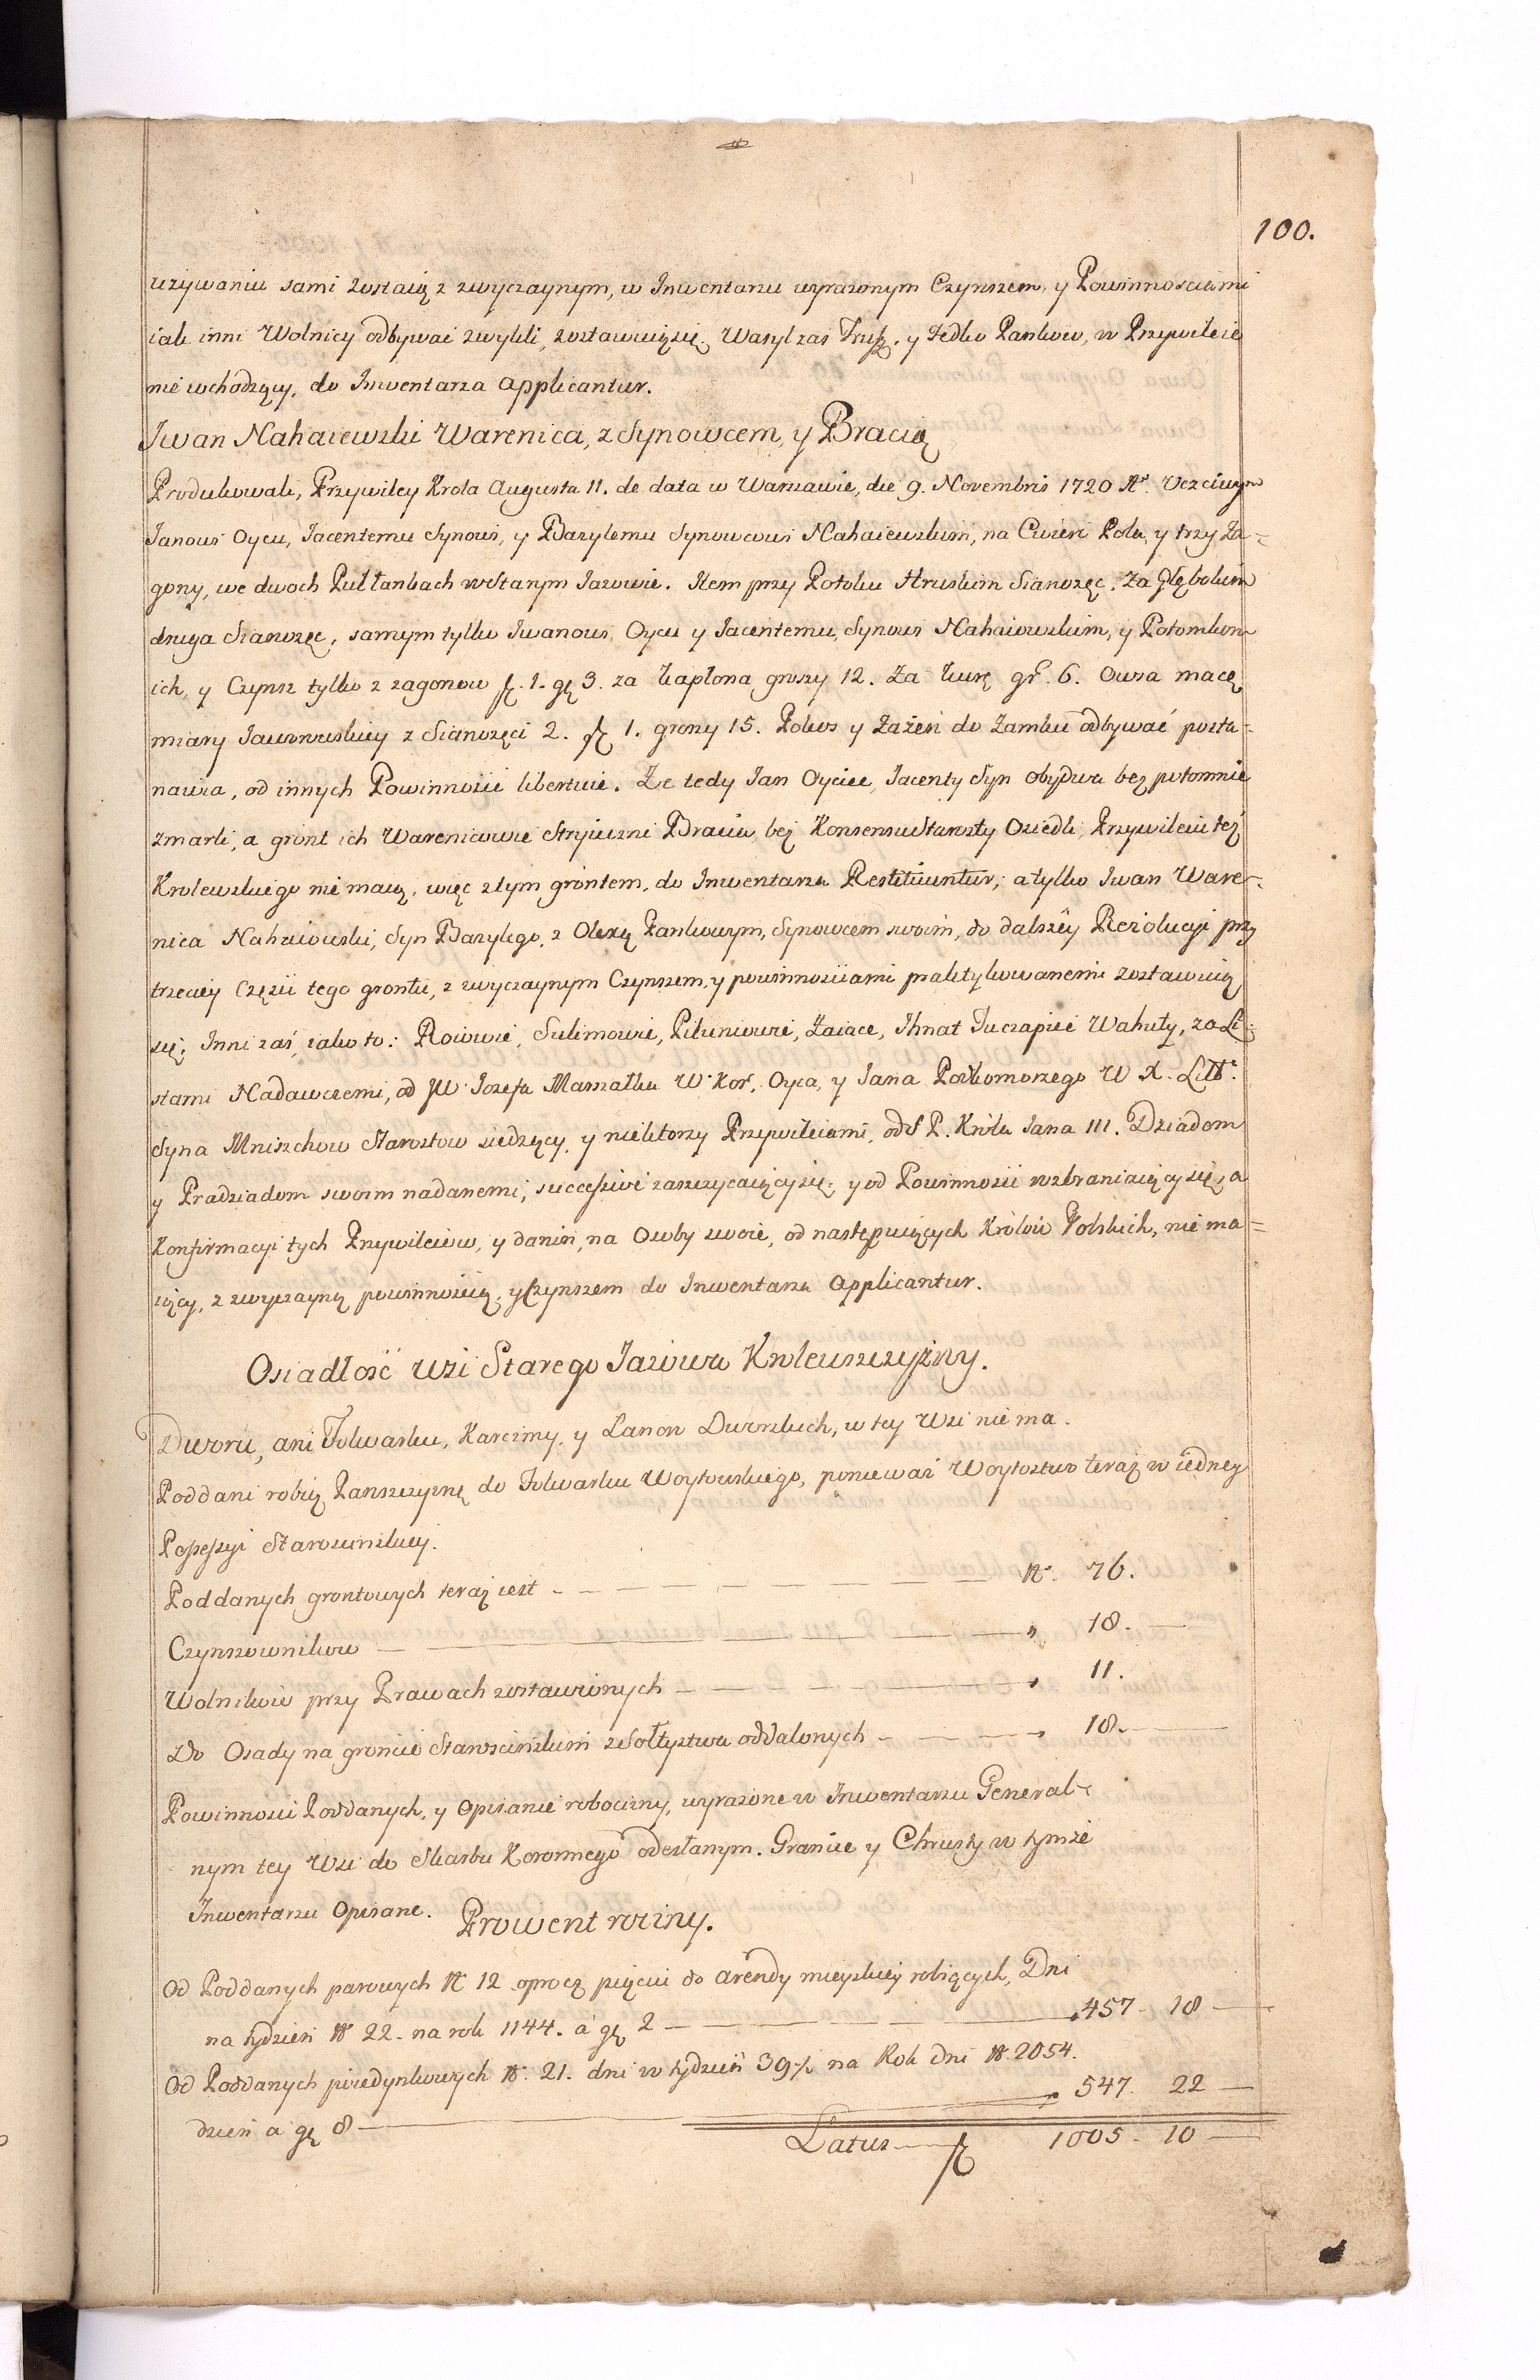 100.
używaniu sami zostaią z zwyczaynym, w Inwentarzu wyrażonym Czynszem, y Powinnosciami
iak inni Wolnicy odbywać zwykli, zostawuią się. Wasyl zas Trusz. y Fedko Pankow, w Przywileiu
nie wchodzący, do Inwentarza applicantur.
Iwan Nahaiewski Warenica, z Synowcem, y Bracią
Produkowali, Przywiley Krola Augusta II. de data w Warszawie, die 9. Novembris 1720 Ao. Uczciwym
Janowi Oycu, Iacentemu Synowi, y Bazylemu Synowcowi Nahaiewskim, na Cwierć Pola, y trzy Za-
gony, we dwoch Pułłankach w Starym Iazowie. Item przy Potoku Hruskim Sianożęć, Za Głębokim
druga Sianożęć, samym tylko Iwanowi Oycu y Iacentemu, Synowi Nahaiowskim, y Potomkom
ich, y Czynsz tylko z zagonow f. 1. gr 3. za Kapłona groszy 12. Za Kurę gr. 6. Owsa macę
miary Iaworowskiey z Sianożęci 2. f 1. groszy 15. Powoz y Zażeń do Zamku odbywać posta-
nawia, od innych Powinności libertuie. Ze tedy Jan Oyciec, Iacenty Syn obydwa bez potomnie
zmarli, a gront ich Wareniowie Stryieczni Bracia, bez Konsensu Starosty Osiedli, Przywileiu też
Krolewskiego nie maią, więc z tym grontem, do Inwentarza Restituuntur, a tylko Iwan Ware-
nica Nahaiowski, Syn Bazylego, z Olexą Pankowym, Synowcem swoim, do dalszey Rezolucyi przy
trzeciey Części tego grontu, z zwyczaynym Czynszem, y powinnosciami praktykowanemi zostawuią
się; Inni zaś, iako to: Rowowie, Sulimowie, Zaiące, Ihnat Wahuty, za Li-
stami Nadawczemi, od JW Jozefa Marszałka W. Kor. Oyca, y Jana Podkomorzego W X. Litt.
Syna Mniszchow Starostow siedzący, y niektorzy Przywileiami, od S P. Króla Jana III. Dziadom
y Pradziadom swoim nadanemi, successivé zaszczycaiący się, y od Powinności wzbraniaiący się, a
Konfirmacyi tych Przywileiów, y danin, na Osoby swoie, od następuiących Królów Polskich, nie ma-
iący, z zwyczayną powinnością, y Czynszem do Inwentarza applicantur.
Osiadłość Wsi Starego Jazowa Krolewszczyzny.
Dworu, ani Folwarku, Karczmy, y Łanow Dworskich, w tey Wsi nie ma.
Poddani robią Panszczyznę do Folwarku Woytowskiego, ponieważ Woytostwo teraz w iedney
Possessyi Staroscinskiey.
Poddanych grontowych teraz iest - - - N. 76.
Czynszownikow - - - " 18.
Wolnikow przy Prawach zostawionych - - - " 11.
Do Osady na groncie Staroscinskim z Sołtystwa oddalonych - - - " 18.
Powinnosci Poddanych, y Opisanie robocizny, wyrażone w Inwentarzu General-
nym tey Wsi do Skarbu Koronnego odesłanym. Granice y Chrusty w tymże
Inwentarzu Opisane.
Prowent roczny.
Od Poddanych parowych N 12 oprocz pięciu do arendy mieyskiey robiących, Dni
na tydzień N 22 - na rok 1144. a gr 2 - - - 457 - 18
Od Poddanych poiedynkowych N. 21. dni w tydzień 39½ na Rok dni N. 2054.
dzień a gr 8 - 547. 22
Latus - f 1005 - 10